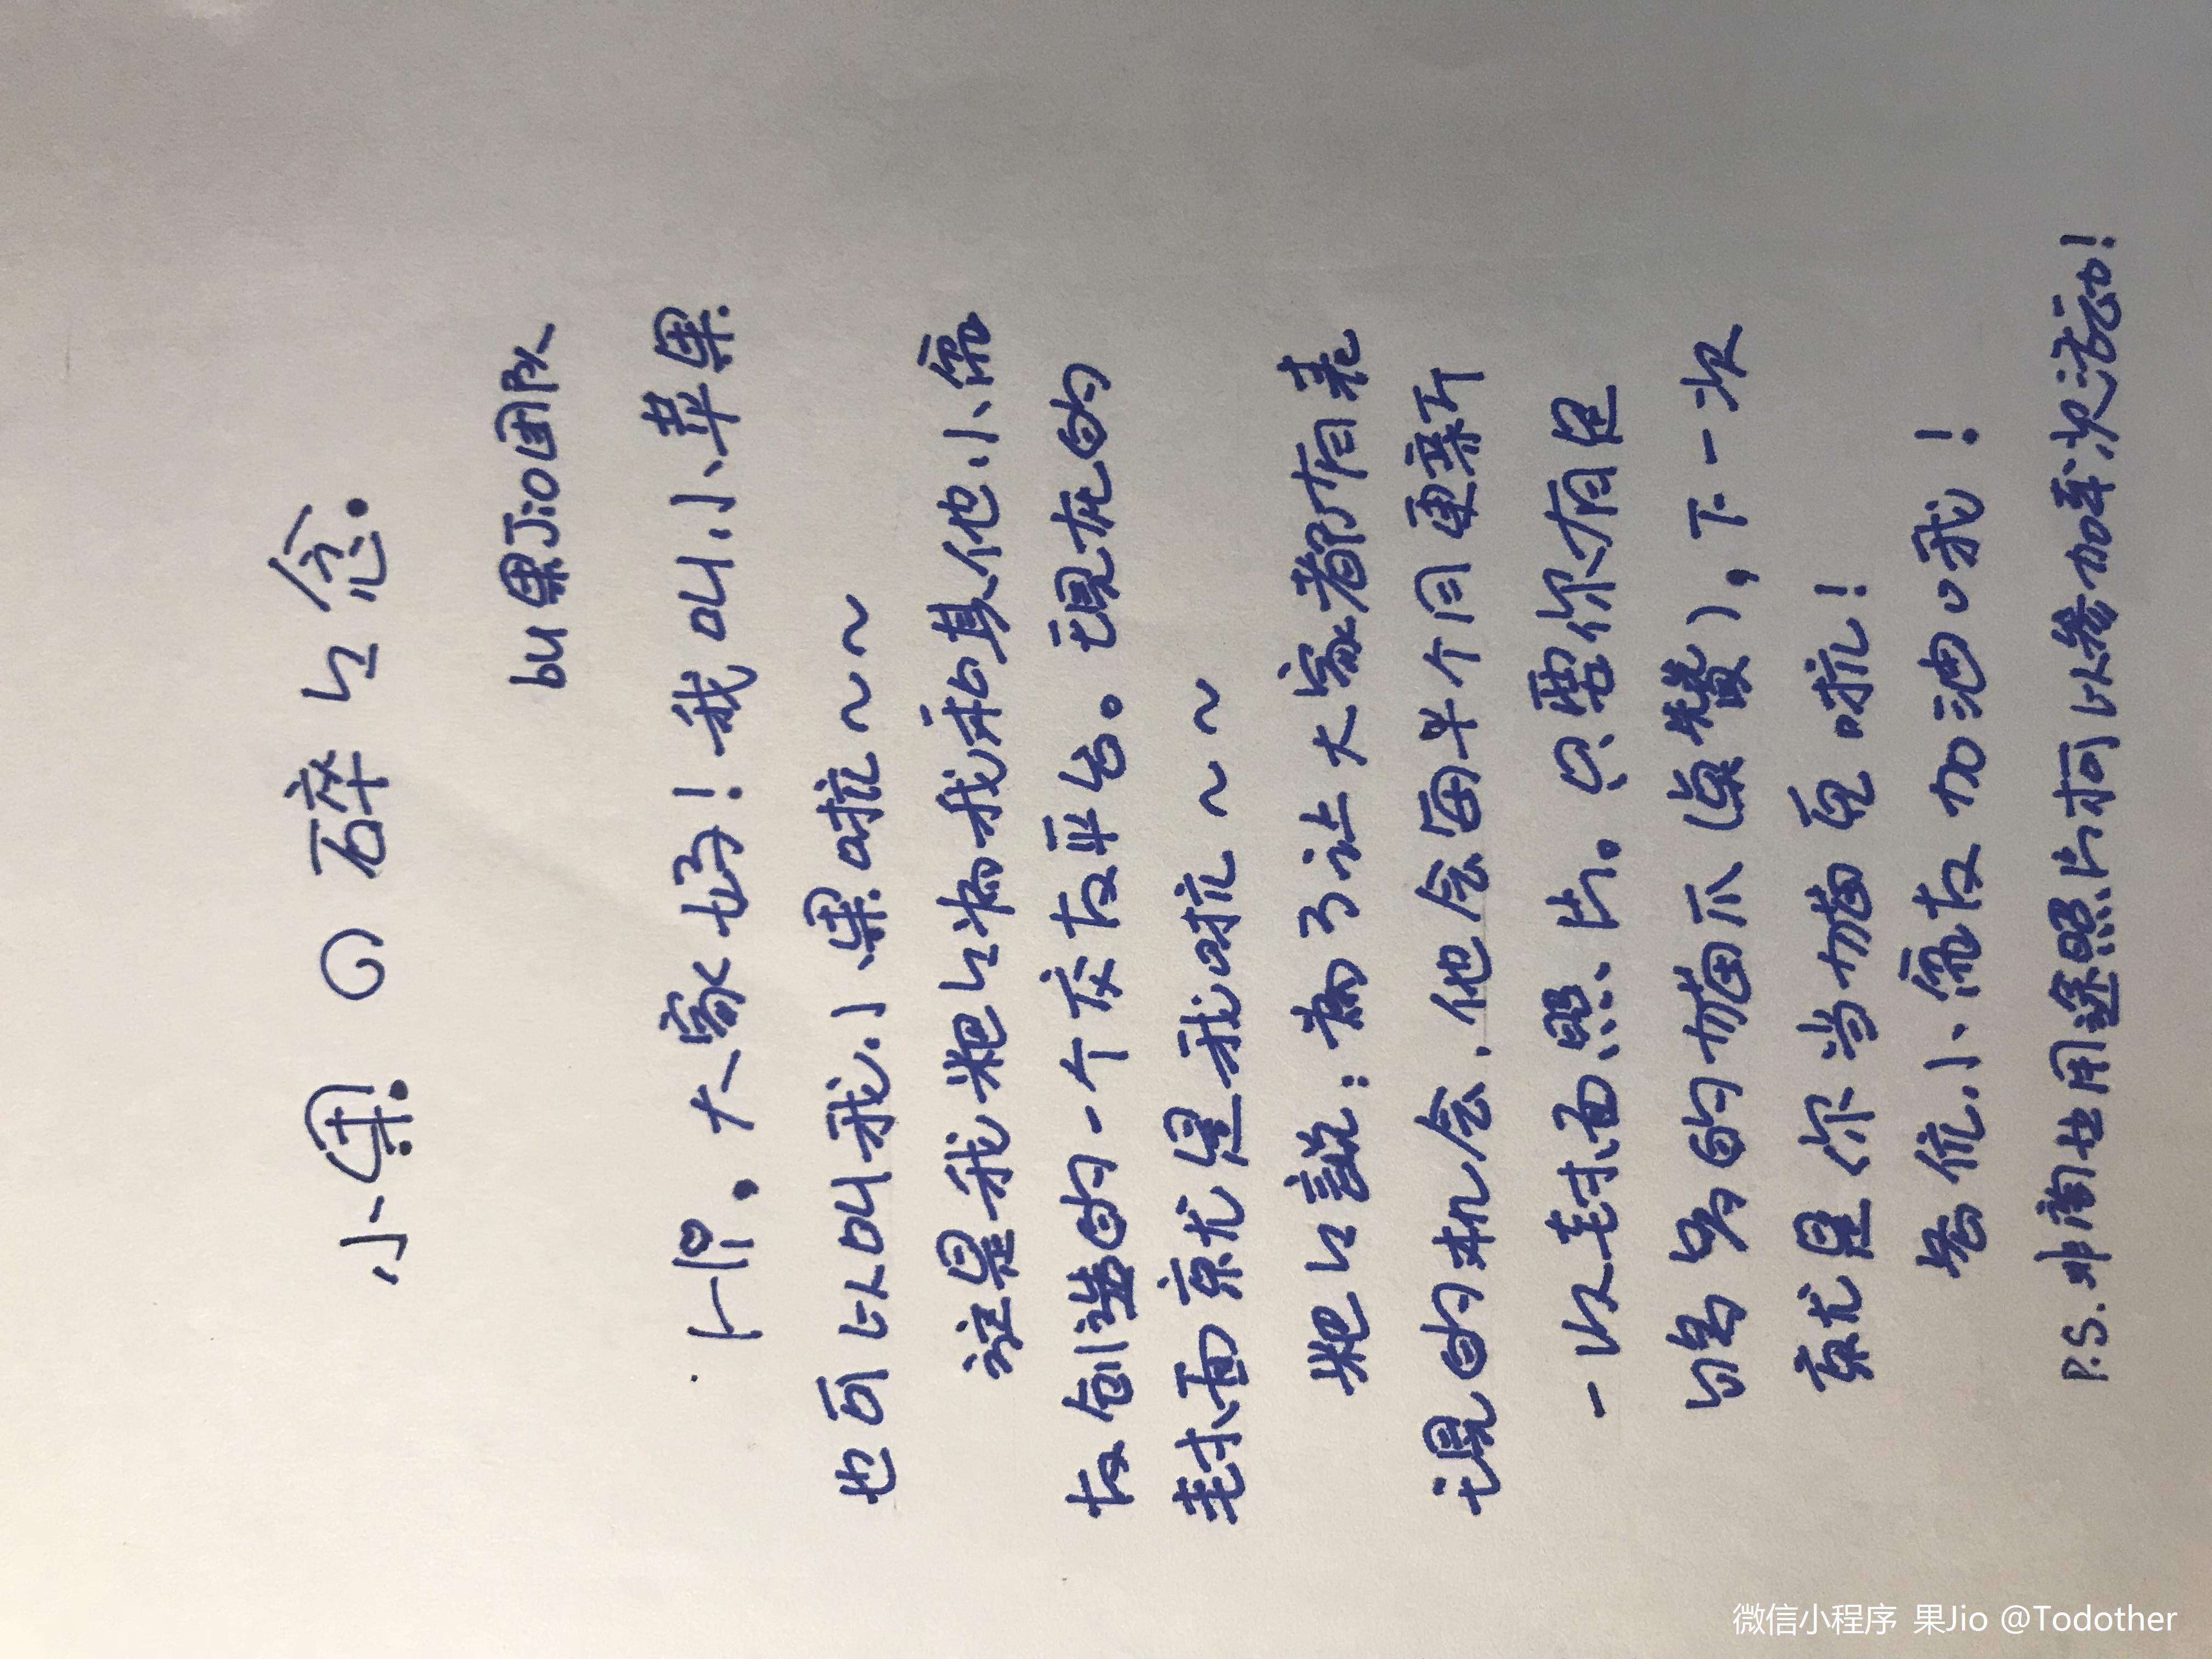 小果の碎々念.
by 果Jio团队
Hi，大家好！我叫小苹果
也可以叫我小果啦～～
这是我粑々为我和其他小朋
友创造的一个交友平台。現在的
封面就是我啦～～
粑々説：為了让大家都有表
現的机会，他会每半个月更新
一次封面照片。只要你有足
够多的猫爪（点赞），下一次
就是你当猫豆啦！
各位小朋友加油哦！
P.S. 非商业用途照片才可以参加本次活动！
微信小程序 果Jio @Todother